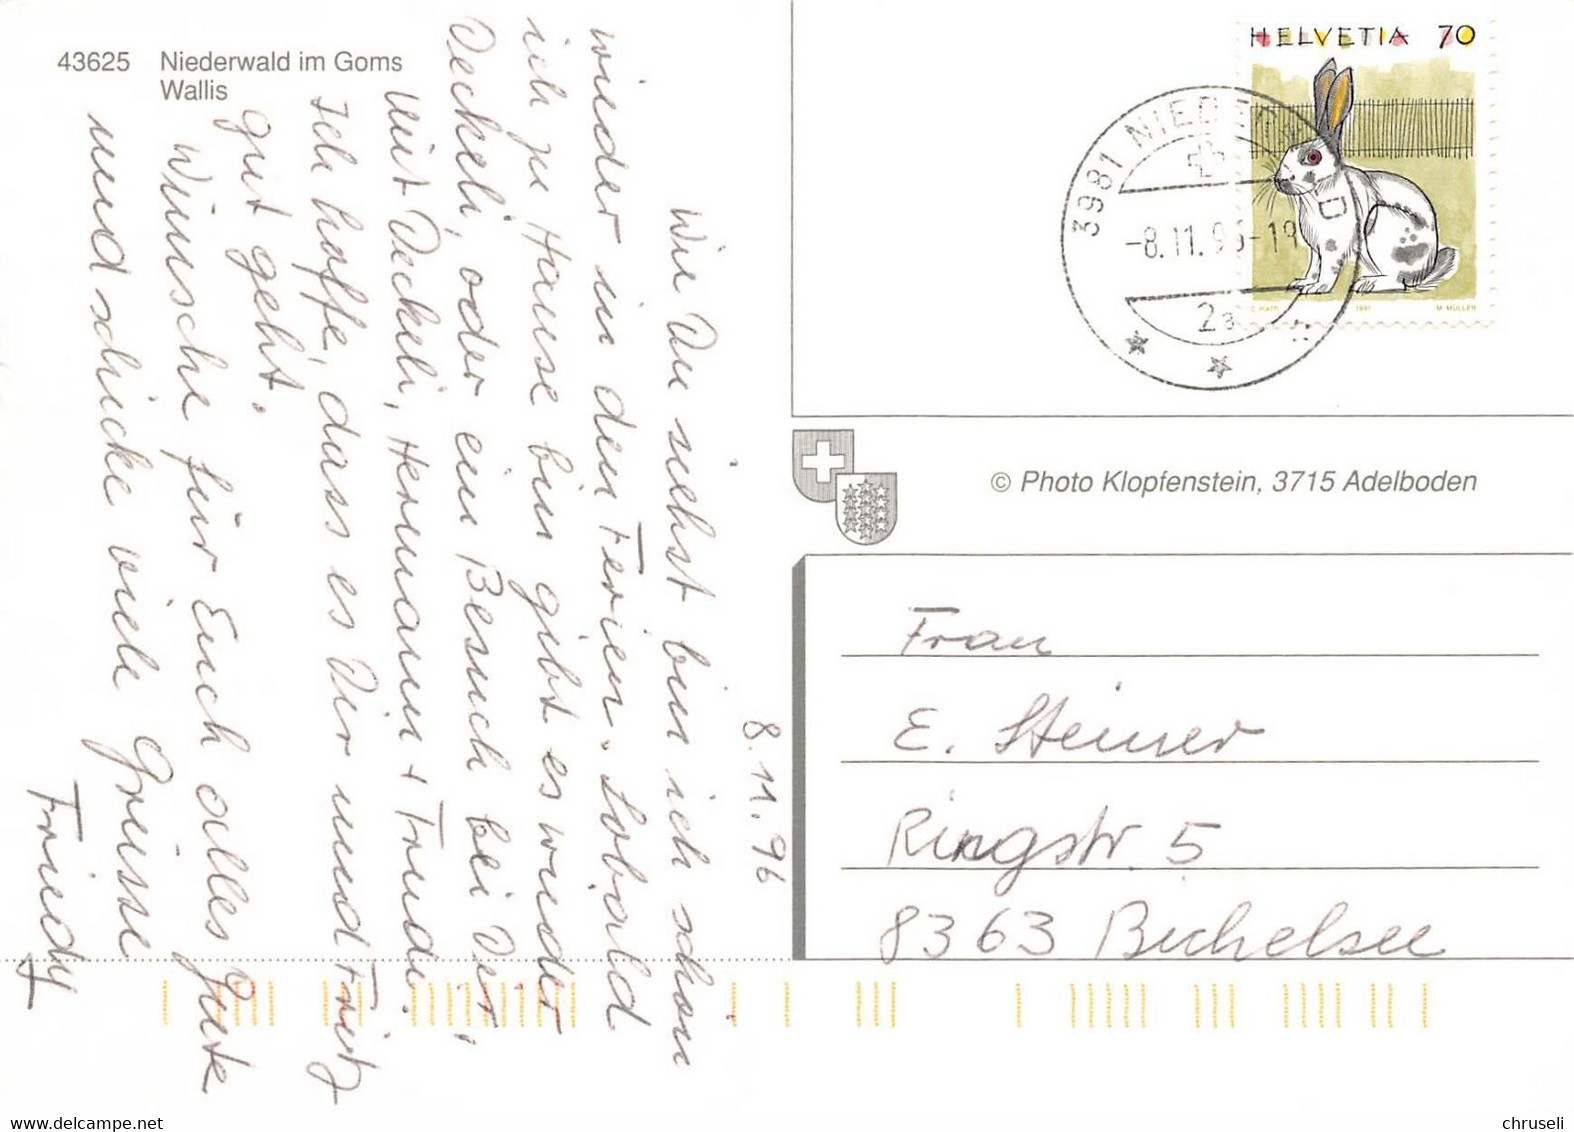 43625 Niederwald im Goms
Wallis
HELVETIA 70
3981 NIED
-8.11.96-19
2a
1991
M. MÜLLER
© Photo Klopfenstein, 3715 Adelboden
8.11.96
Wie Du siehst bin ich schon
wieder in den Ferien. Sobald
ich zu Hause bin gibt es wieder
Deckeli, oder ein Besuch bei Dir,
mit Deckeli, Hermann + Trudi.
Ich hoffe, dass es Dir und Fritz
gut geht.
Wünsche für Euch alles Gute
und schicke viele Grüsse
Friedy
Frau
E. Steiner
Ringstr. 5
8363 Bichelsee
chruseli